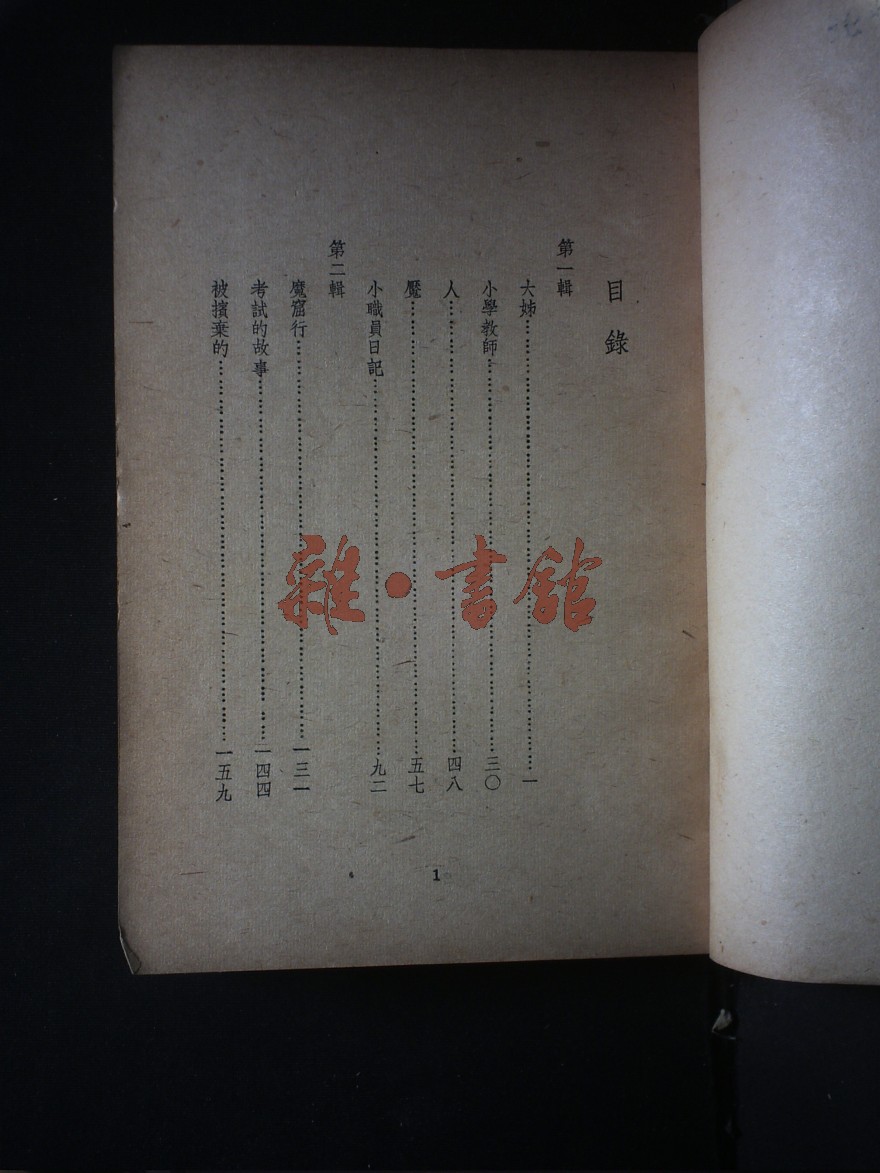 目錄
第一輯
大姊……………………一
小學教師……………………三〇
人……………………四八
魘……………………五七
小職員日記……………………九二
第二輯
魔窟行……………………一三一
考試的故事……………………一四四
被擯棄的……………………一五九
1
雜·書館